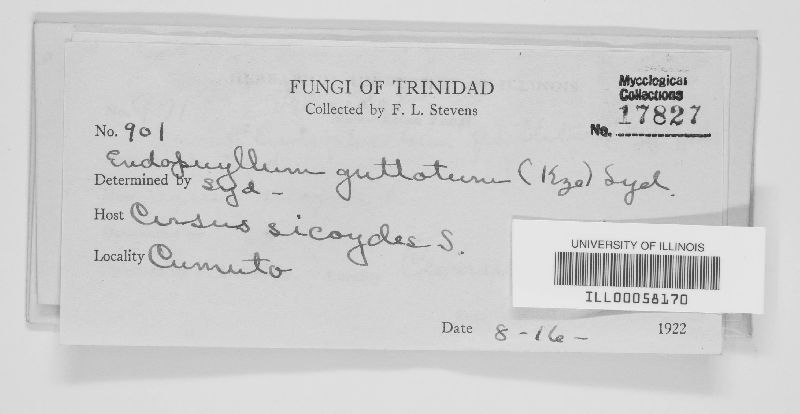 FUNGI OF TRINIDAD
Collected by F. L. Stevens
Mycological
Collections
No. 17827
No. 901
Endophyllum guttatum (Kze) Syd.
Determined by Syd -
Host Cissus sicoydes S.
Locality Cumuto
UNIVERSITY OF ILLINOIS
ILL00058170
Date 8-16- 1922